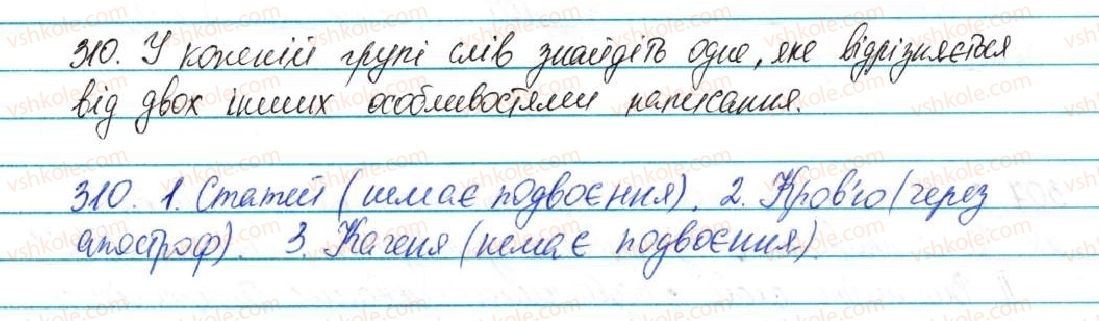 310. У кожній групі слів знайдіть одне, яке відрізняється
від двох інших особливостями написання.
310. 1. Статей (немає подвоєння). 2. Кров'ю (через
апостроф). 3. Каченя (немає подвоєння).